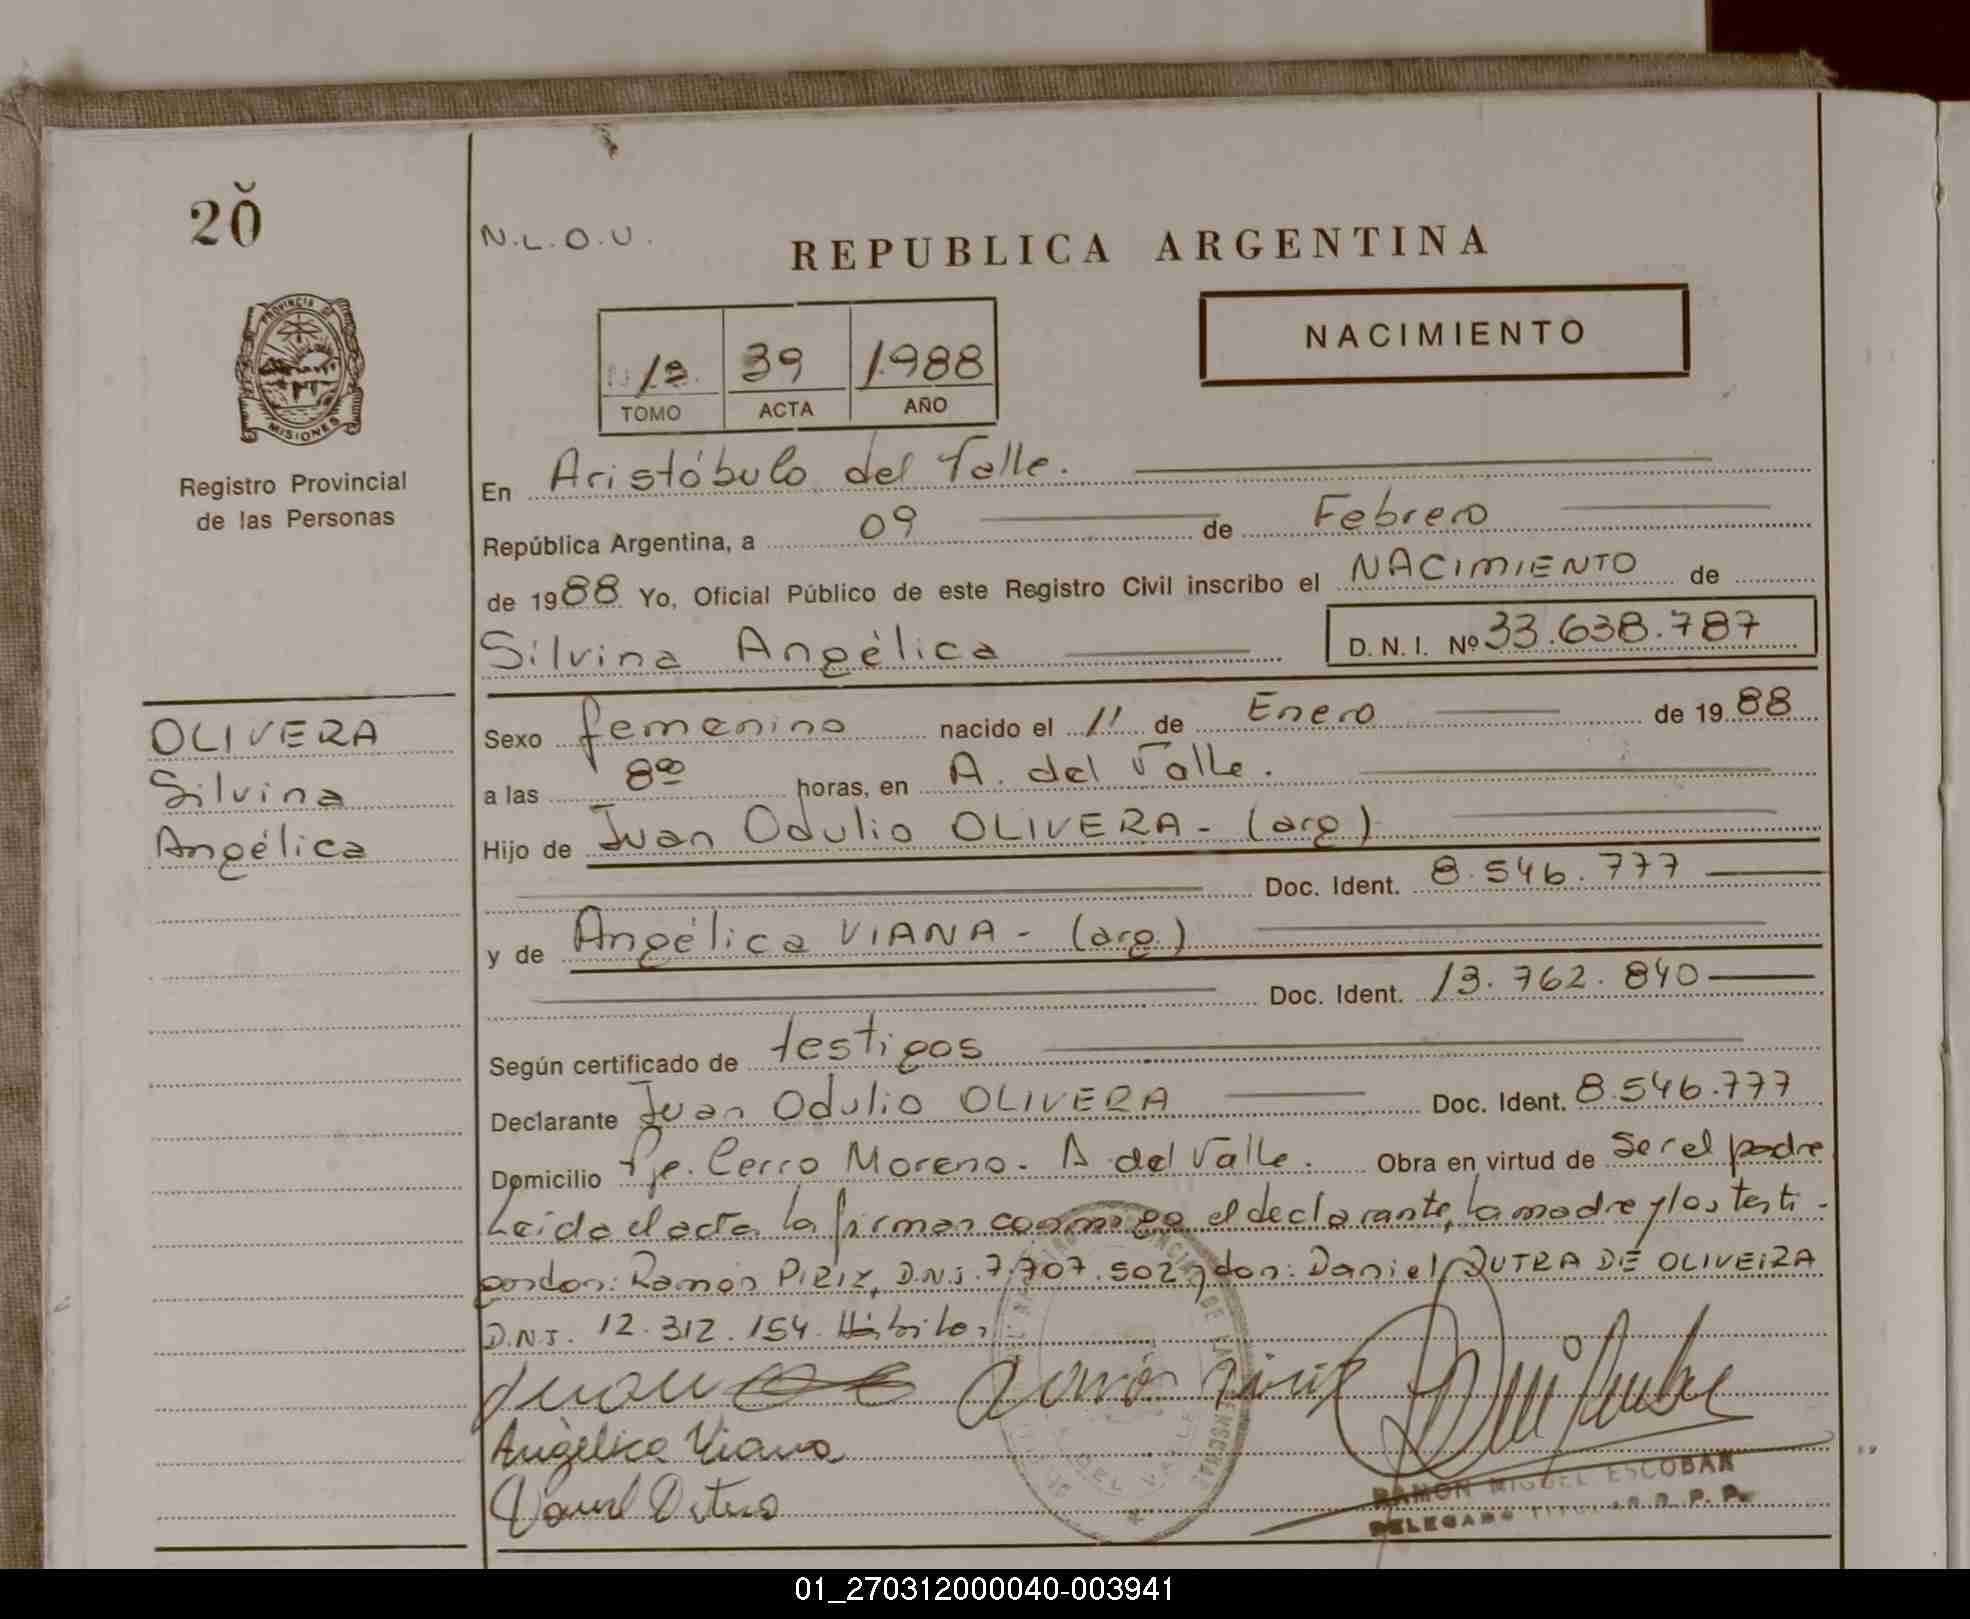 20
N.L.O.U.
REPUBLICA ARGENTINA
PROVINCIA DE
MISIONES
Registro Provincial
de las Personas
39 1988
TOMO ACTA AÑO
NACIMIENTO
En Aristóbulo del Valle.
República Argentina, a 09 de Febrero
de 1988 Yo, Oficial Público de este Registro Civil inscribo el NACIMIENTO de
Silvina Angélica D.N.I. Nº 33.638.787
OLIVERA
Silvina
Angélica
Sexo femenino nacido el 11 de Enero de 1988
a las 8⁰⁰ horas, en A. del Valle.
Hijo de Juan Odulio OLIVERA - (arg)
Doc. Ident. 8.546.777
y de Angélica VIANA - (arg.)
Doc. Ident. 13.762.840
Según certificado de testigos
Declarante Juan Odulio OLIVERA Doc. Ident. 8.546.777
Domicilio Pje. Cerro Moreno. A del Valle. Obra en virtud de ser el padre
Leida el acta la firman conmigo el declarante, la madre y los testi-
gos don: Ramón PIRIZ, D.N.I. 7.707.502 y don: Daniel DUTRA DE OLIVEIRA
D.N.I. 12.312.154. Hábiles
Juan Ramón Piriz
Angélica Viana
RAMON MIGUEL ESCOBAR
DELEGADO TITULAR R. P. P.
01_270312000040-003941